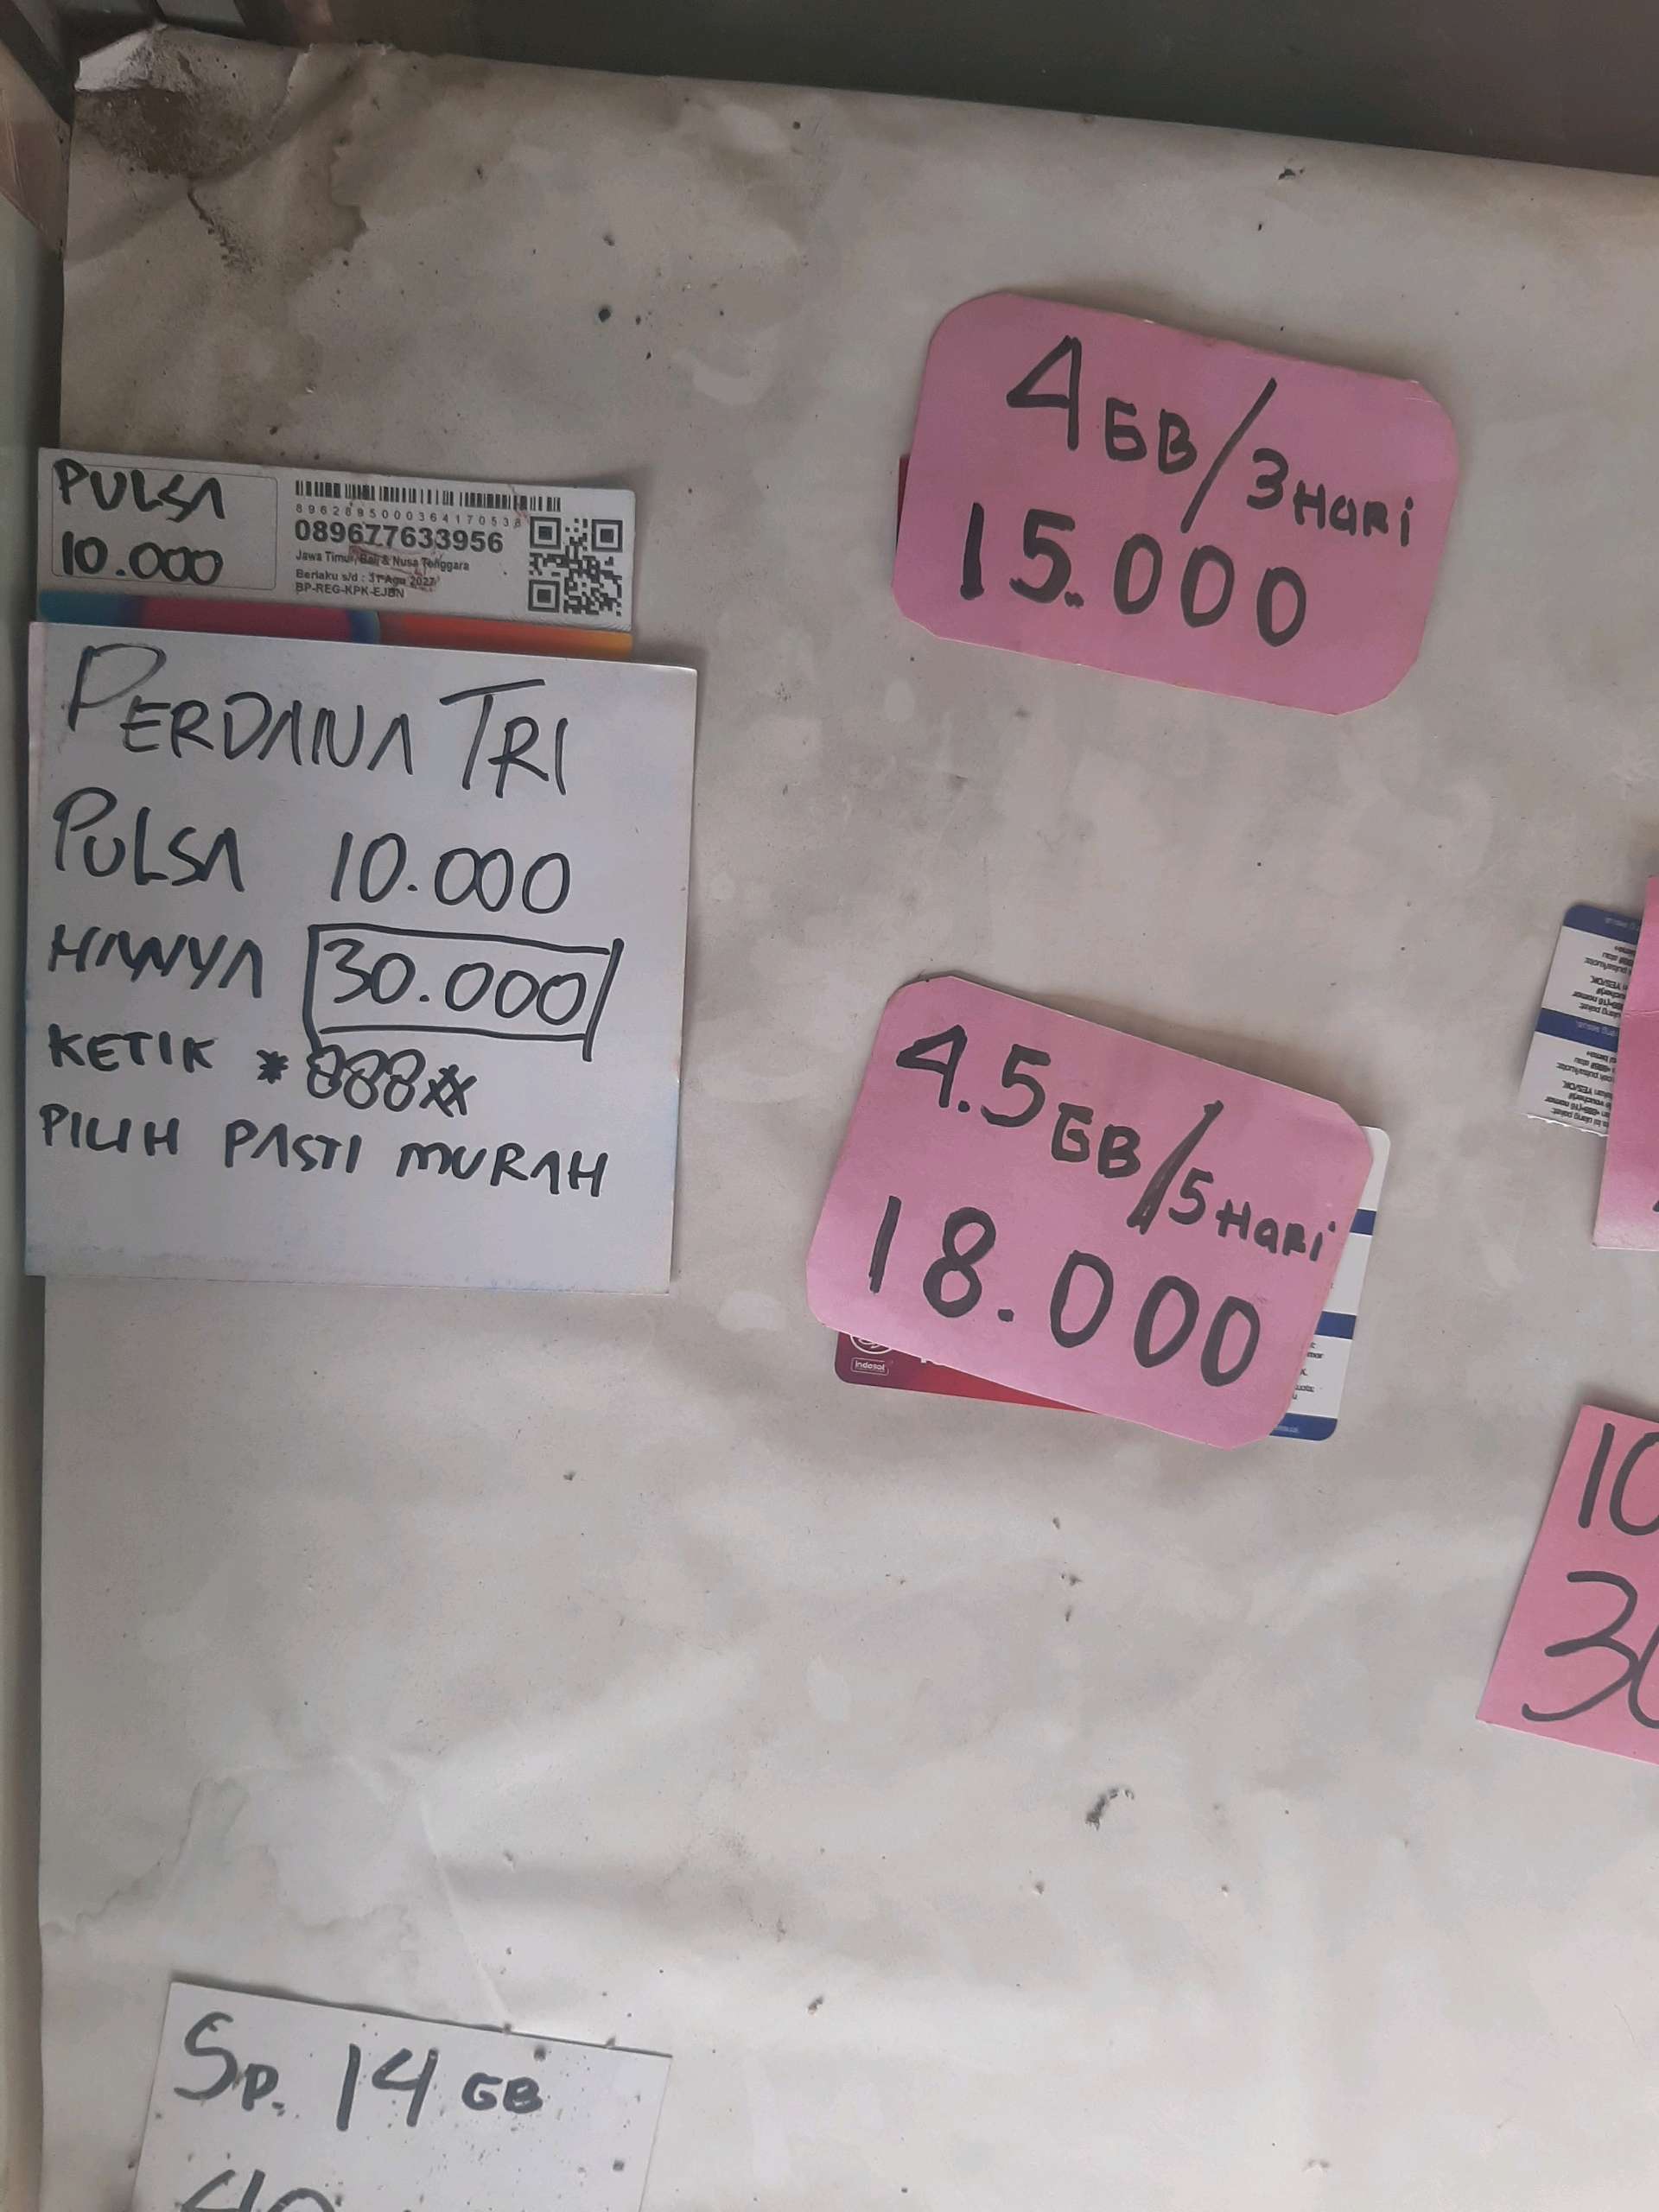 PULSA
10.000
8962895000364170538
089677633956
Jawa Timur, Bali & Nusa Tenggara
Berlaku s/d : 31 Agu 2027
BP-REG-KPK-EJBN
PERDANA TRI
PULSA 10.000
HANYA 30.000
KETIK *888**
PILIH PASTI MURAH
4 GB/3 HARI
15.000
4.5 GB/5 HARI
18.000
indosat
10
30
Sp. 14 GB
40